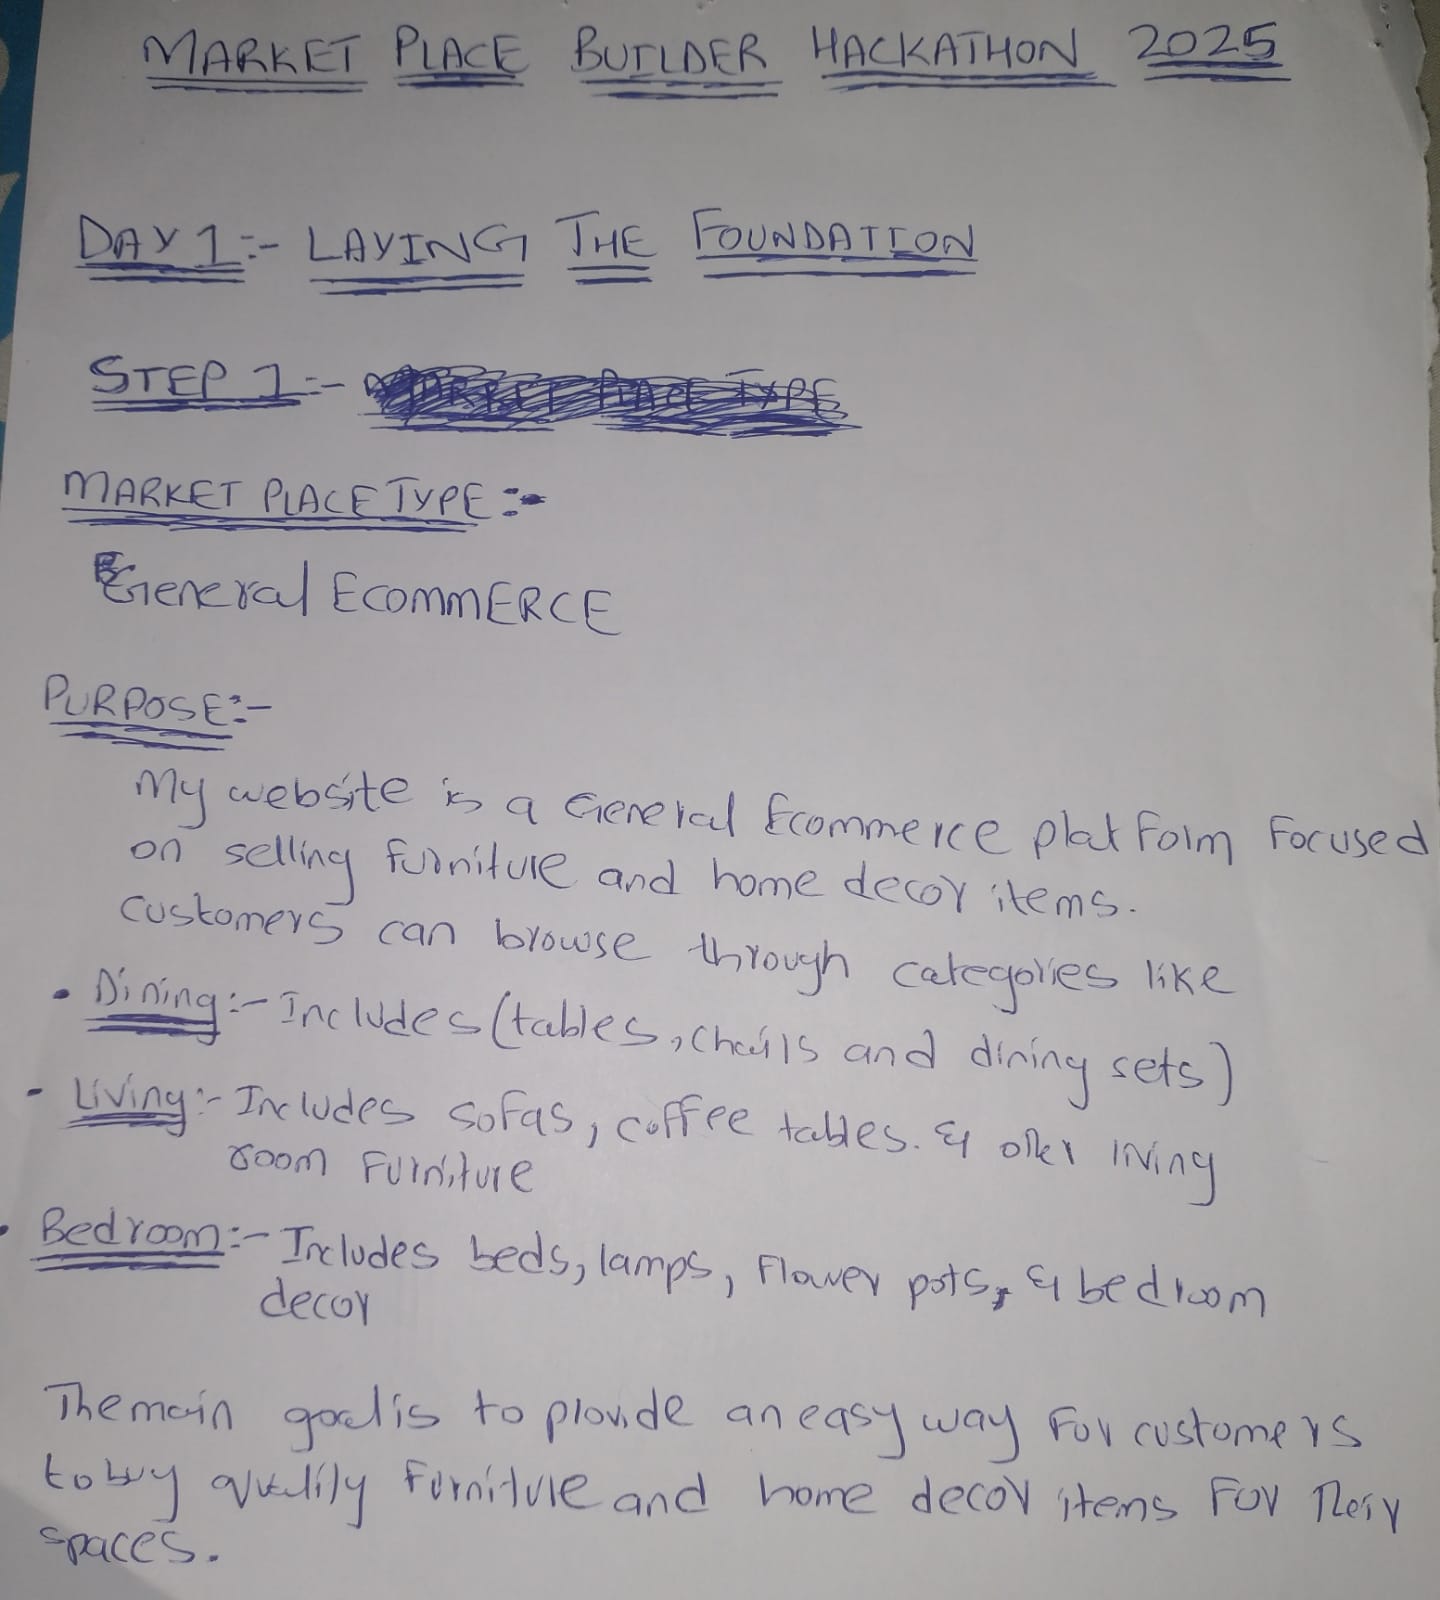 MARKET PLACE BUILDER HACKATHON 2025
DAY 1:- LAYING THE FOUNDATION
STEP 1:- MARKET PLACE TYPE
MARKET PLACE TYPE :-
General ECOMMERCE
PURPOSE:-
My website is a General Ecommerce platform Focused
on selling furniture and home decor items.
customers can browse through categories like
• Dining:- Includes (tables, chairs and dining sets)
- Living:- Includes sofas, coffee tables. & other living
room Furniture
• Bedroom:- Includes beds, lamps, Flower pots, & bedroom
decor
The main goal is to provide an easy way For customers
to buy quality furniture and home decor items For Their
spaces.